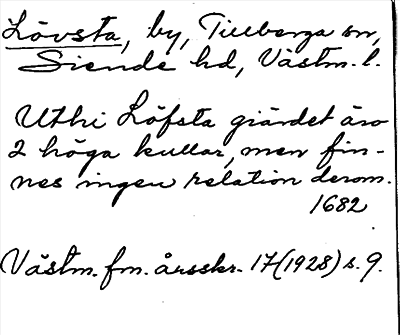 Lövsta, by, Tillberga sn,
Siende hd, Västm. l.
Uthi Löfsta giärdet äro
2 höga kullar, men fin-
nes ingen relation derom.
1682
Västm. fm. årsskr. 17(1928) s. 9.